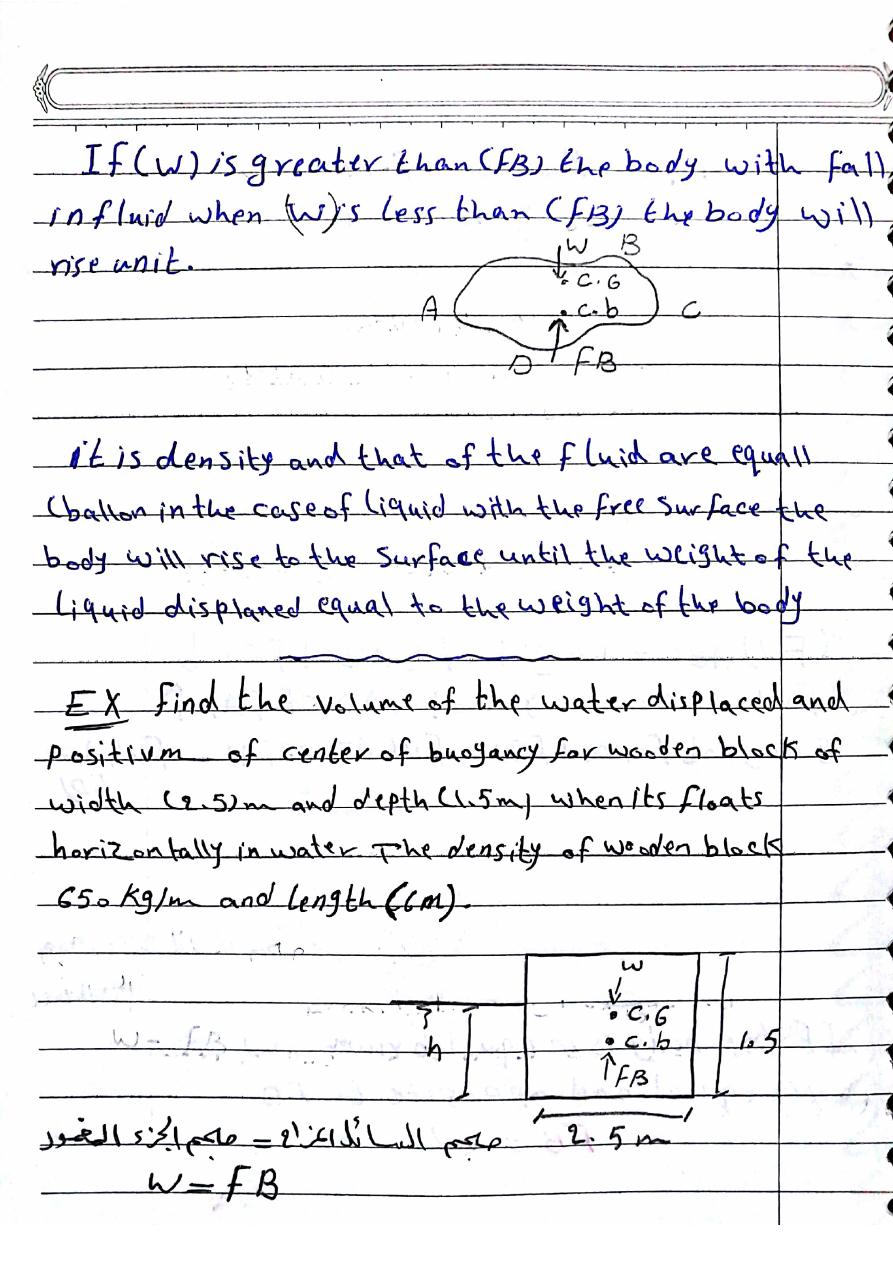 If (W) is greater than (FB) the body with fall
in fluid when (W) is less than (FB) the body will
rise unit.
W B
c.G
A c.b C
D FB
it is density and that of the fluid are equall
(ballon in the case of liquid with the free surface the
body will rise to the surface until the weight of the
liquid displaned equal to the weight of the body
EX find the volume of the water displaced and
of center of buoyancy for wooden block of
width (2.5)m and depth (1.5m) when its floats
horizontally in water The density of wooden block
650 kg/m and length (6m).
W
c.G
h c.b 1.5
FB
حجم السائل المزاح = حجم الجزء المغمور 2.5 m
W = FB